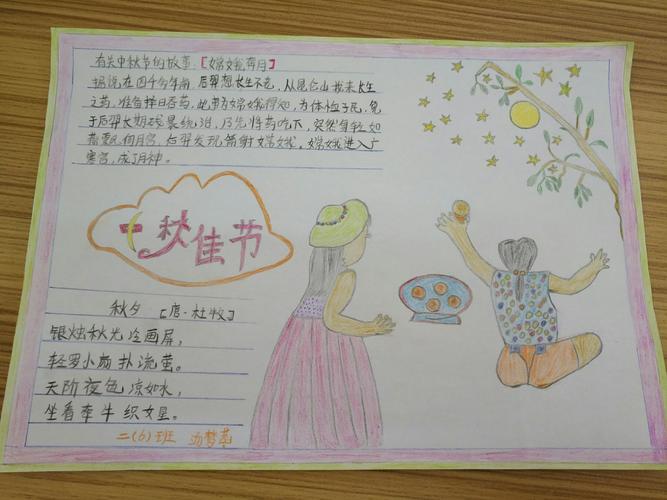 有关中秋节的故事【嫦娥奔月】
据说,在四千多年前,后羿想长生不老,从昆仑山找来长生
之药,准备择日吞药,此事为嫦娥得知,为体恤子民,免
于后羿长期残暴统治,乃先将药吃下,突然身轻如
燕飘向月宫,后羿发现箭射嫦娥,嫦娥进入广
寒宫,成了月神。
中秋佳节
秋夕 [唐·杜牧]
银烛秋光冷画屏,
轻罗小扇扑流萤。
天阶夜色凉如水,
坐看牵牛织女星。
二(6)班 梦